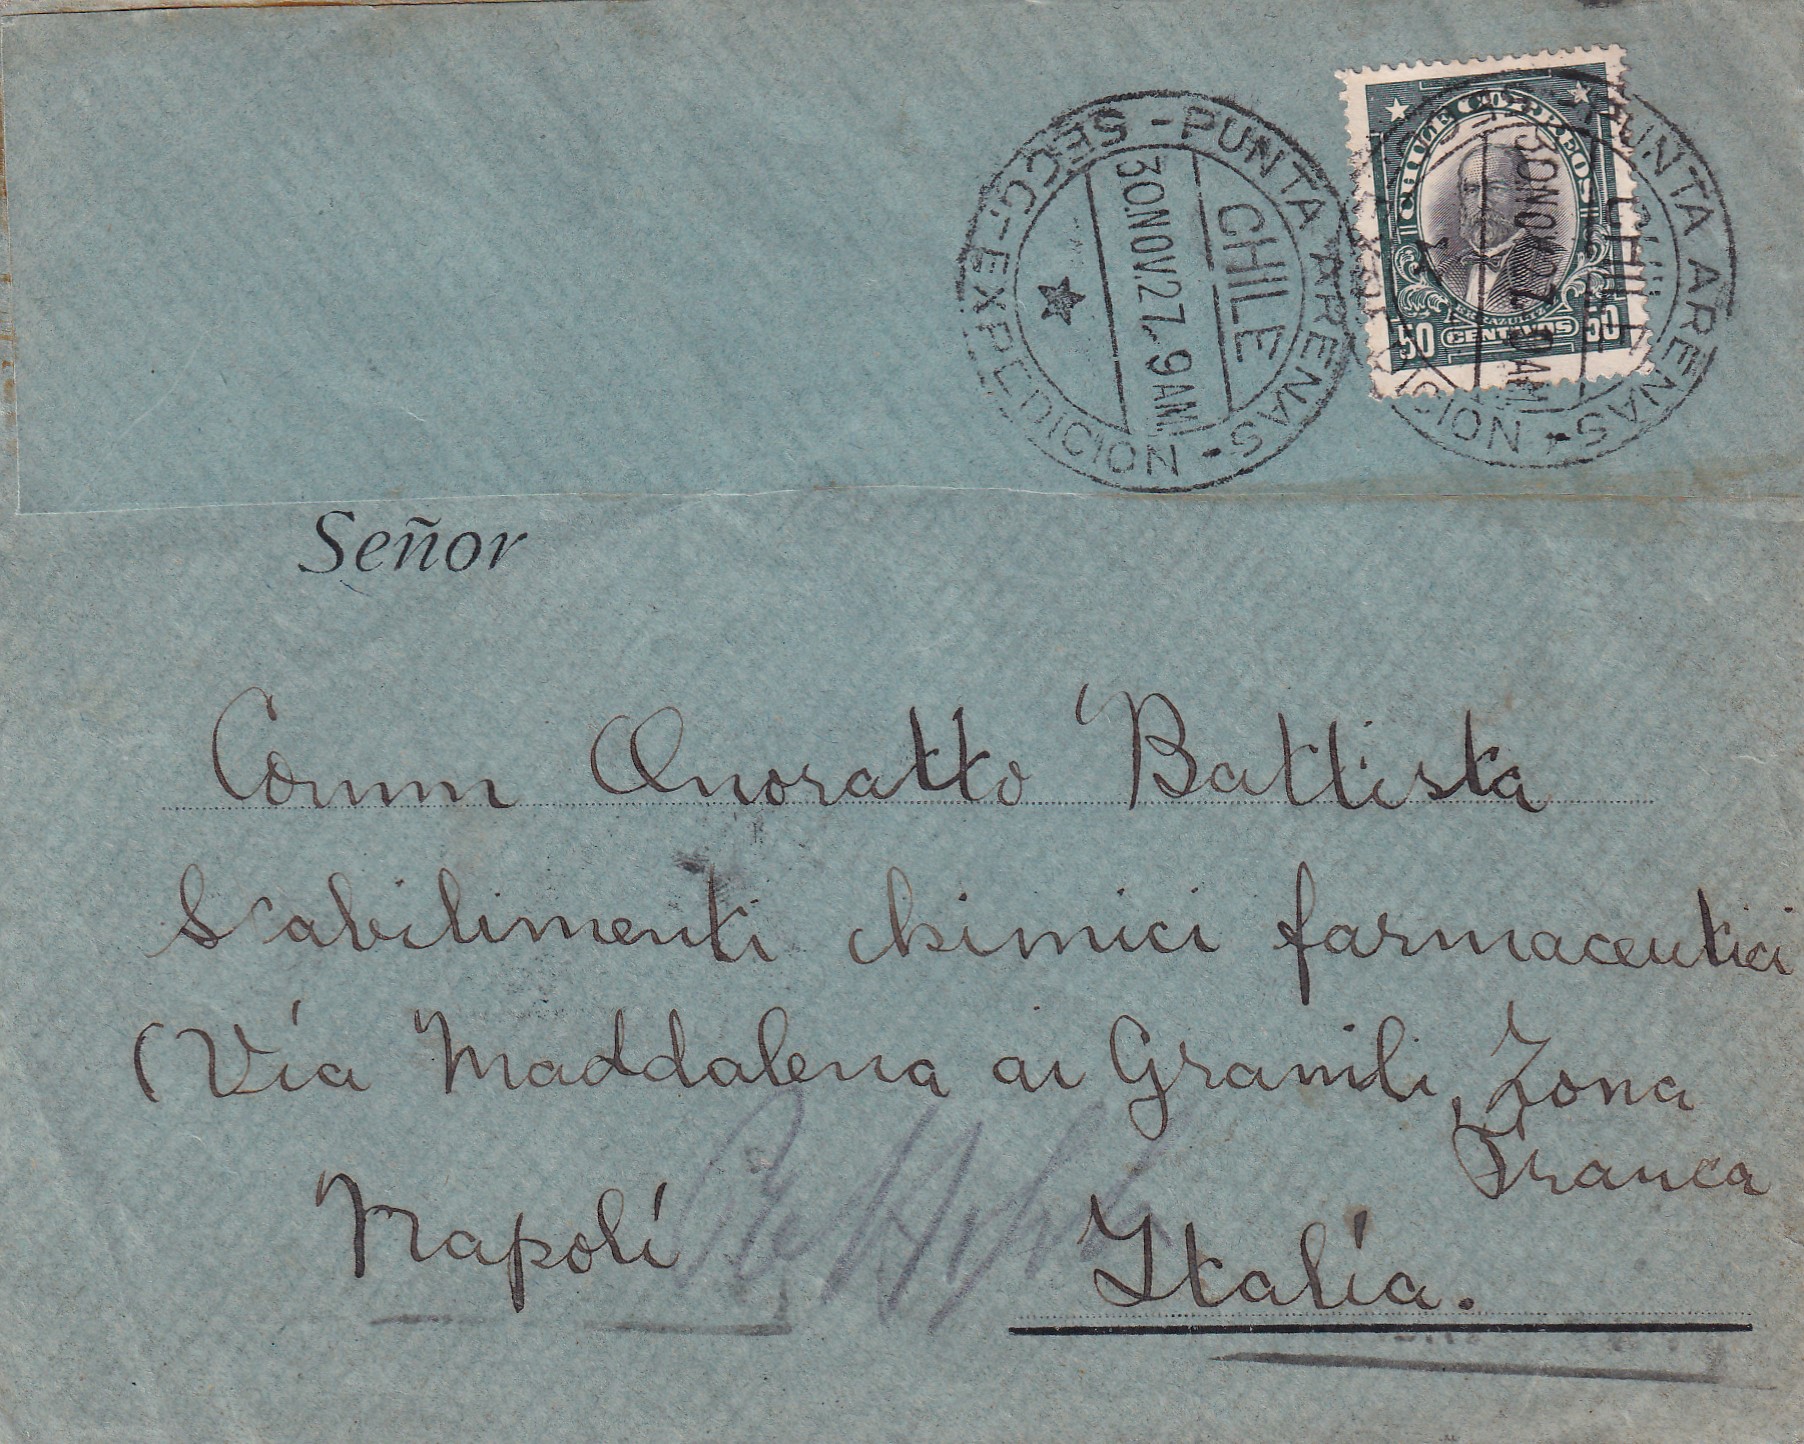 SECC. EXPEDICION - PUNTA ARENAS -
CHILE
30.NOV.27. 9 AM.
CHILE CORREOS
ERRAZURIZ
50 CENTAVOS 50
PUNTA ARENAS
CHILE
30.NOV.27. 9 AM.
Señor
Comm Onoratto Battista
Stabilimenti chimici farmaceutici
(Vía Maddalena ai Granili, Zona
Franca
Napolí
Italía.